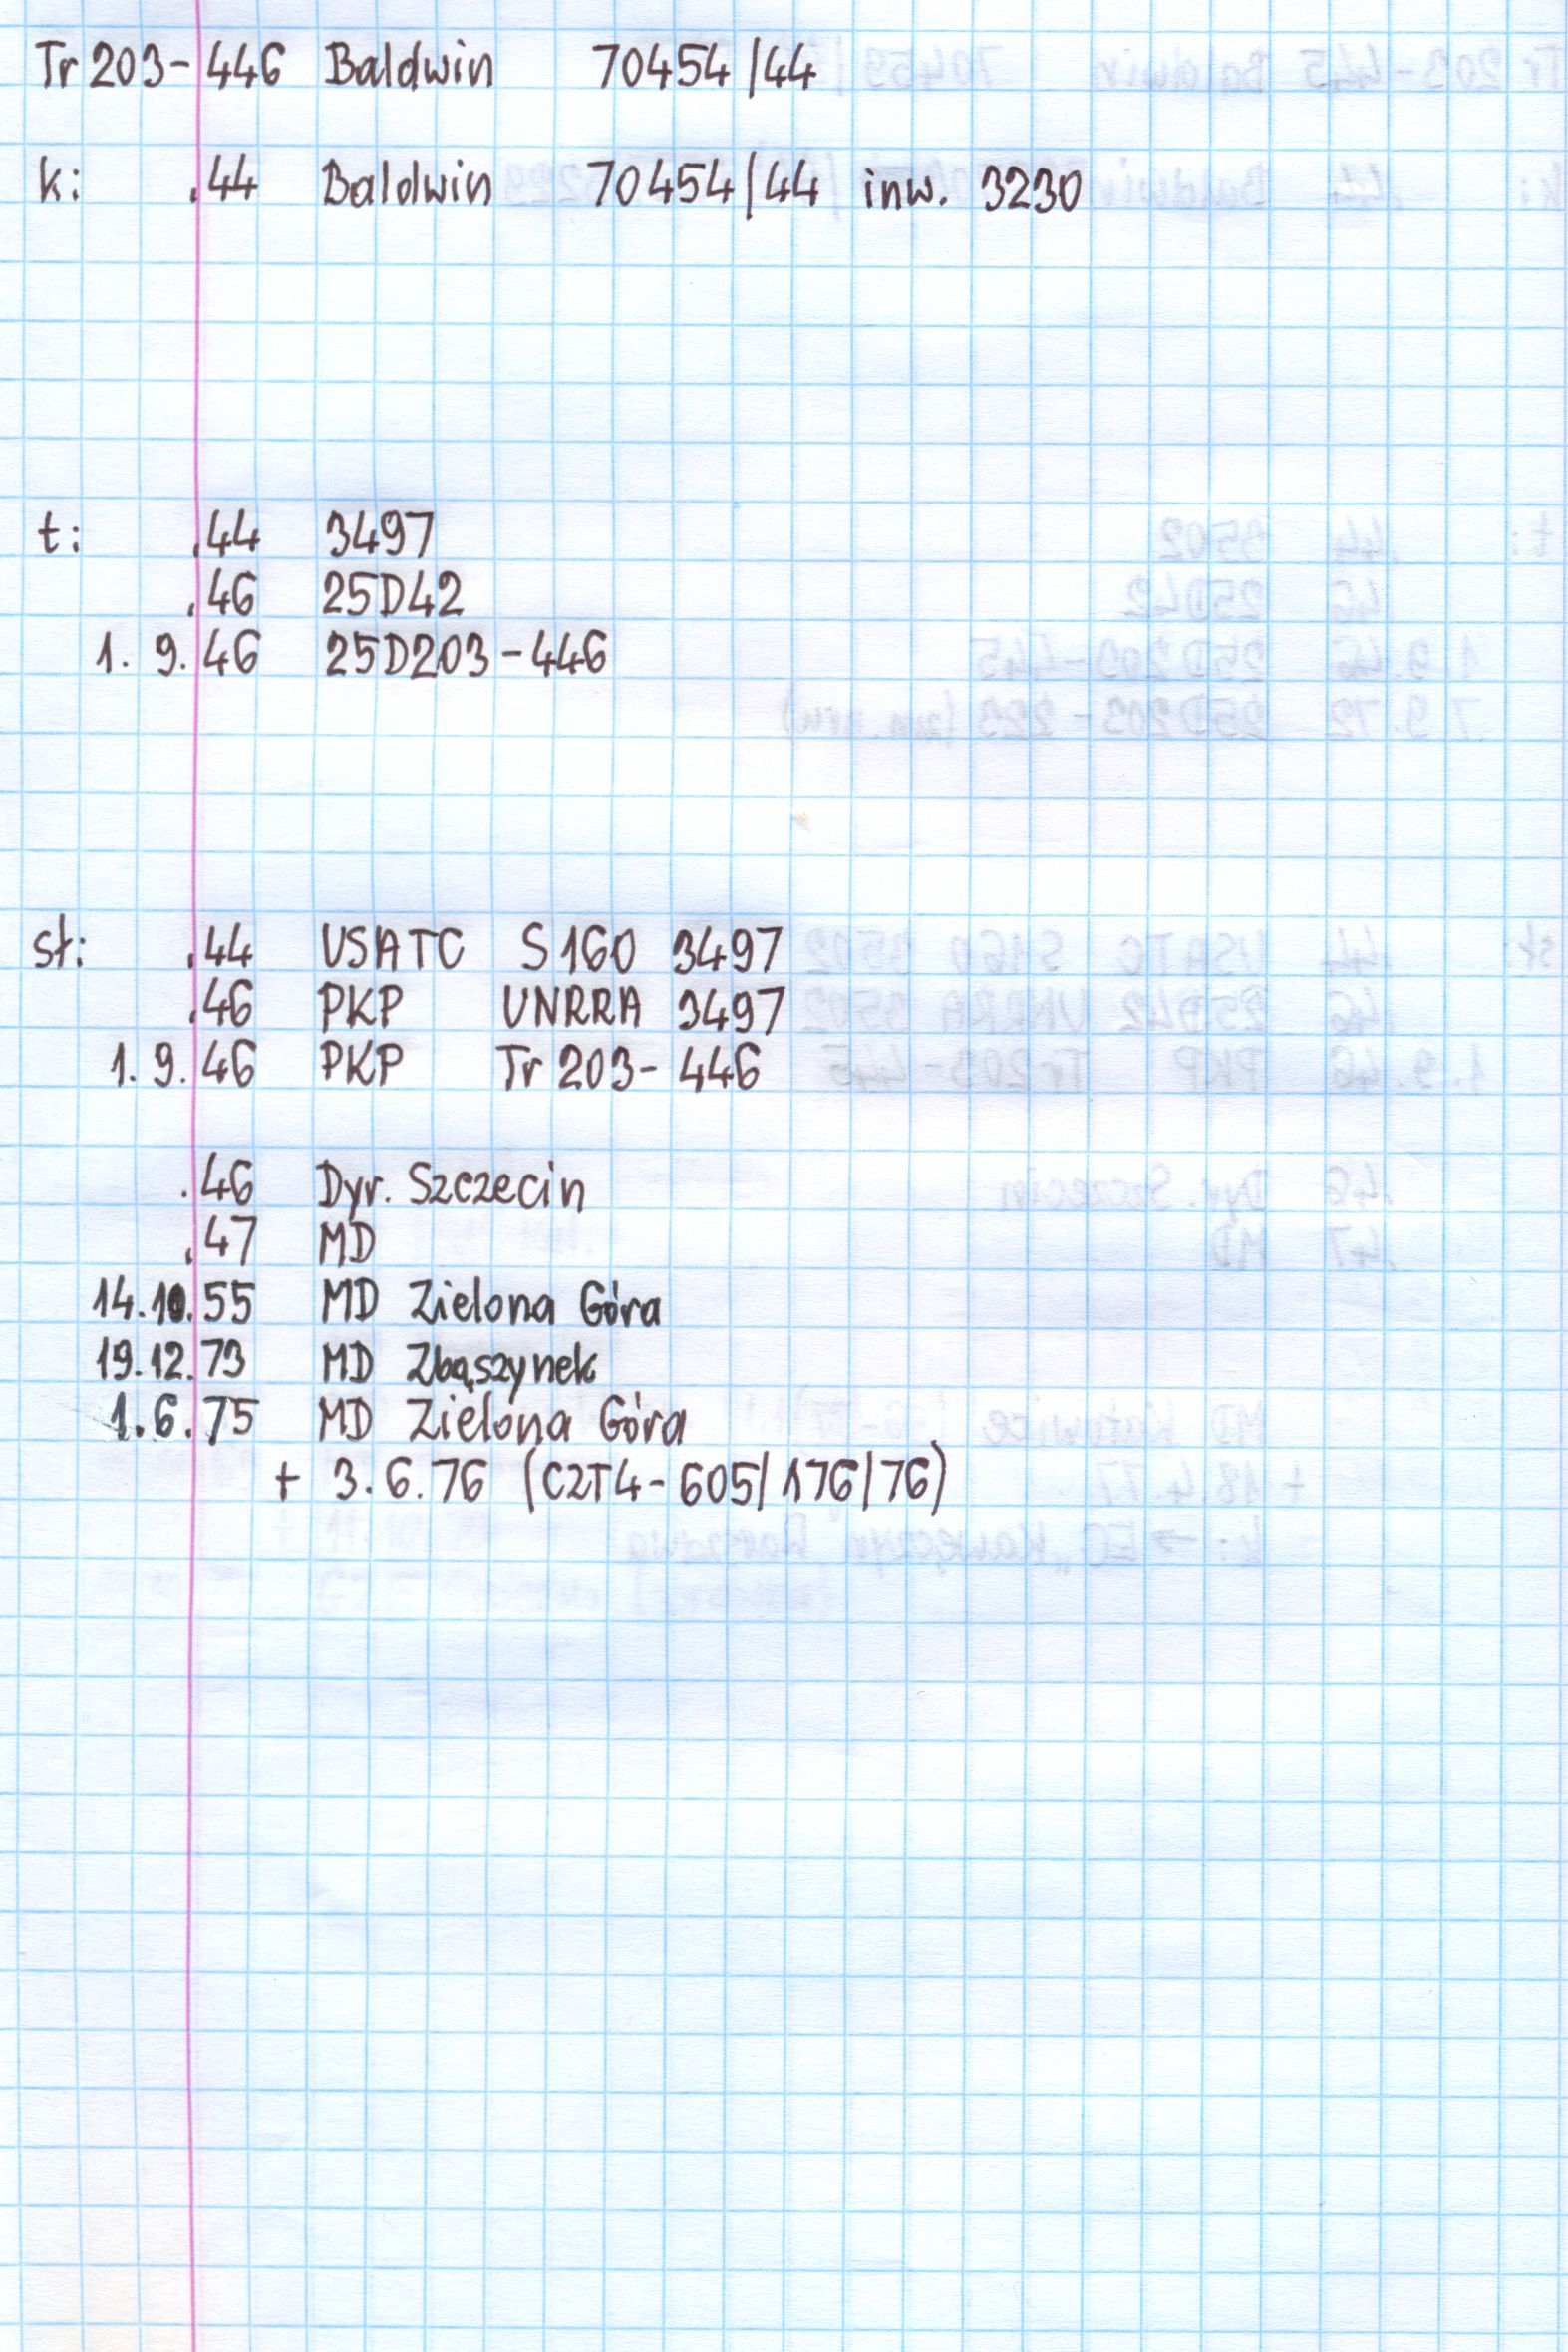 Tr 203-446 Baldwin 70454/44
k: .44 Baldwin 70454/44 inw. 3230
t: .44 3497
.46 25D42
1. 9.46 25D203-446
sł: .44 USATC S160 3497
.46 PKP UNRRA 3497
1. 9.46 PKP Tr 203-446
.46 Dyr. Szczecin
.47 MD
14.10.55 MD Zielona Góra
19.12.73 MD Zbąszynek
1.6.75 MD Zielona Góra
+ 3.6.76 (C2T4-605/176/76)